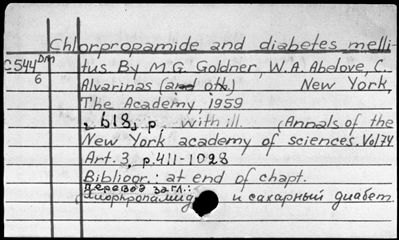 Chlorpropamide and diabetes melli-
C544 DM
6
tus. By M.G. Goldner, W.A. Abelove, C.
Alvarinas (and oth.) New York,
The Academy, 1959
618, p. with ill. (Annals of the
New York academy of sciences. Vol 74
Art. 3, p. 411-1028
Bibliogr.: at end of chapt.
перевод загл.:
Хлорпропамид и сахарный диабет.